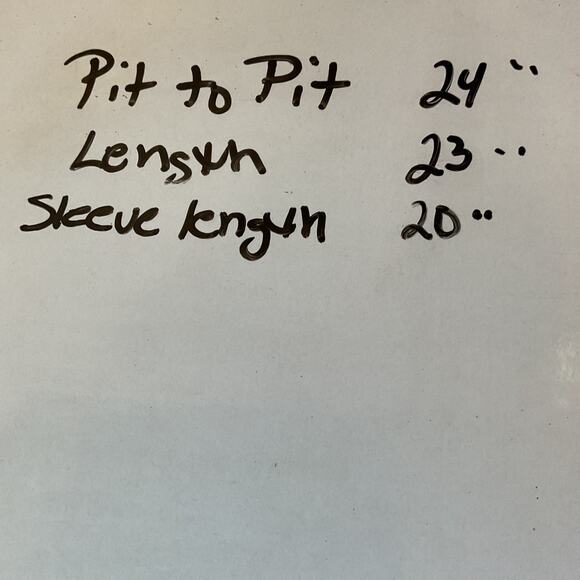 Pit to Pit 24"
Length 23"
Sleeve length 20"